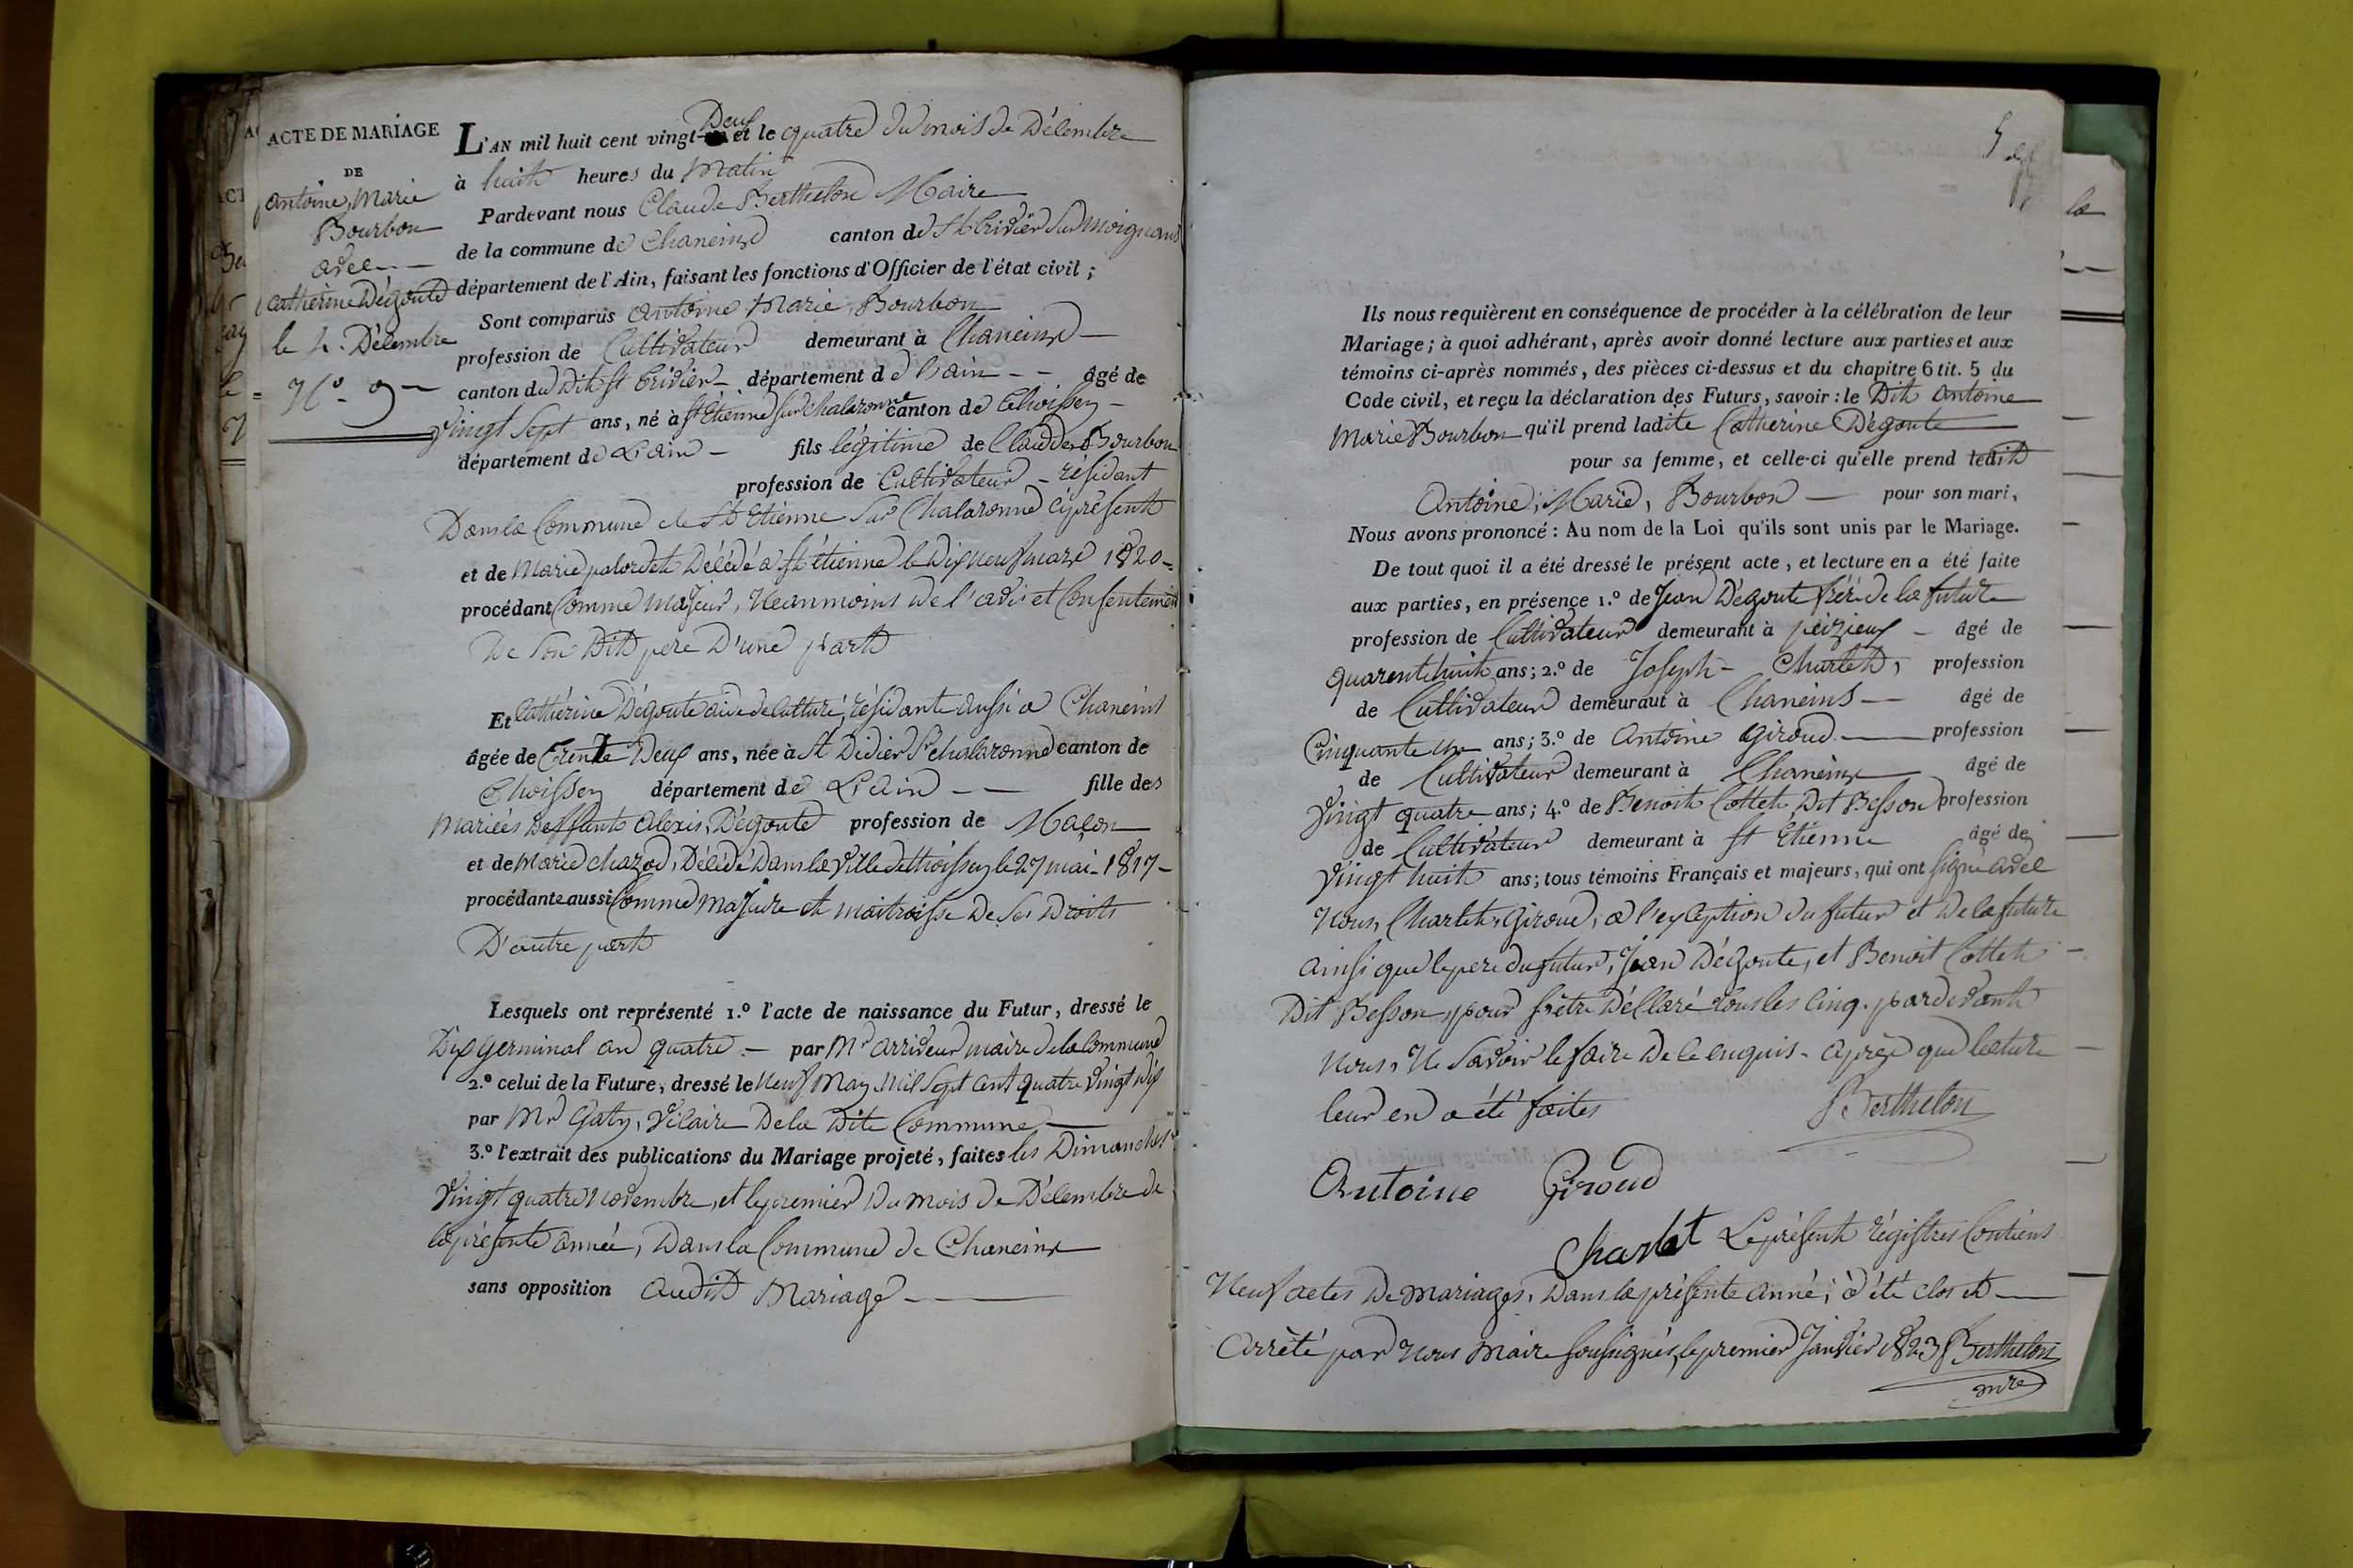 ACTE DE MARIAGE
DE
antoine, Marie
Bourbon
avec
Catherine Dégoute
le 4. Décembre
N.o 9
L'AN mil huit cent vingt-Deux et le quatre du mois de Décembre
à huit heures du Matin
Pardevant nous Claude Berthelon Maire
de la commune de Chaneins canton de St trivier Sur moignans
département de l'Ain, faisant les fonctions d'Officier de l'état civil ;
Sont comparus antoine Marie, Bourbon
profession de Cultivateur demeurant à Chaneins
canton du Dit St trivier département de Lain âgé de
Vingt Sept ans, né à St Etienne sur chalaronne canton de thoissey
département de Lain fils légitime de Claude Bourbon
profession de Cultivateur résidant
Dans la Commune de St Etienne Sur Chalaronne ciprésent
et de Marie Décédé à St étienne le Dix neuf mars 1820
procédant Comme Majeur, Neanmoins de l'avis et Consentement
De Son Dit pere D'une part
Et Cathérine Dégoute aide de Cultture, résidante aussi a Chaneins
âgée de trente Deux ans, née à St Didier Sr chalaronne canton de
thoissey département de Lain fille des
Mariées Deffunts alexis, Dégoute profession de Maçon
et de Marie chazod, Décédé Dans la Ville de thoissey le 27 mai 1817
procédante aussi Comme majeure et maitroisse De Ses Droits
D'autre part
Lesquels ont représenté 1.o l'acte de naissance du Futur, dressé le
Dix germinal an quatre par Mr arriveur maire de la Commune
2.o celui de la Future, dressé le Neuf May Mil Sept Cent quatre Vingt dix
par Mr Gaty, Vicaire De la Dite Commune
3.o l'extrait des publications du Mariage projeté, faites les Dimanches
Vingt quatre Novembre, et le premier du mois de Décembre de
la présente année, Dans la Commune de Chaneins
sans opposition audit Mariage
Ils nous requièrent en conséquence de procéder à la célébration de leur
Mariage ; à quoi adhérant, après avoir donné lecture aux parties et aux
témoins ci-après nommés, des pièces ci-dessus et du chapitre 6 tit. 5 du
Code civil, et reçu la déclaration des Futurs, savoir : le Dit Antoine
Marie Bourbon qu'il prend ladite Catherine Dégoute
pour sa femme, et celle-ci qu'elle prend ledit
Antoine, Marie, Bourbon pour son mari,
Nous avons prononcé : Au nom de la Loi qu'ils sont unis par le Mariage.
De tout quoi il a été dressé le présent acte, et lecture en a été faite
aux parties, en présence 1.o de Jean Dégoute frére de la future
profession de Cultivateur demeurant à peizieux âgé de
quarente huit ans ; 2.o de Joseph Charlet, profession
de Cultivateur demeurant à Chaneins âgé de
Cinquante un ans ; 3.o de Antoine Giroud profession
de Cultivateur demeurant à Chaneins âgé de
Vingt quatre ans ; 4.o de Benoit Cottet Dit Besson profession
de Cultivateur demeurant à St Etienne âgé de
Vingt huit ans ; tous témoins Français et majeurs, qui ont signé avec
Nous, Charlet, Giroud, a l'exception du futur et de la future
ainsi que le pere du futur, Jean Dégoute, et Benoit Cottet
Dit Besson, pour s'être déllaré tous les Cinq pardevant
Nous, Ne Savoir le faire De ce enquis après que lecture
leur en a été faites Berthelon
Antoine Giroud
Charlet Le présent régistres Contiens
Neuf actes De mariages, Dans la présente Anné, a été clos et
Arrêté par Nous Maire Soussignés, le premier Janvier 1823 Berthelon
mre